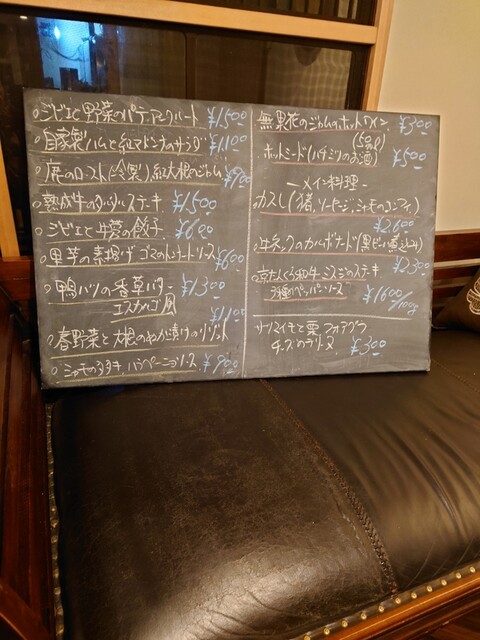 。ジビエと野菜のパテアンクルート ¥1,500
。自家製ハムと紅マドンナのサラダ ¥1,100
。鹿のロースト(冷製)、紅大根のジャム ¥900
。熟成牛のタルタルステーキ ¥1,500
。ジビエと牛蒡の餃子 ¥600
。里芋の素揚げ ゴマの ソース ¥600
。鴨ハツの香草バター ¥1,300
エスカルゴ風 ¥1,100
。春野菜と大根のぬか漬けのリゾット
。シャモのタタキ、ハラペーニョソース ¥900
無果花のジャムのホットワイン ¥300
(50ml)
ホットミード(ハチミツのお酒) ¥500
ーメイン料理ー
カスレ(猪、ソーセージ、シャモのコンフィ)
¥2,600
牛ネックのカルボナード(黒ビール煮込み)
¥2,300
京たんくろ和牛 ステーキ
3種のペッパーソース ¥1600/100g
サツマイモと栗 フォアグラ
チーズのテリーヌ ¥300